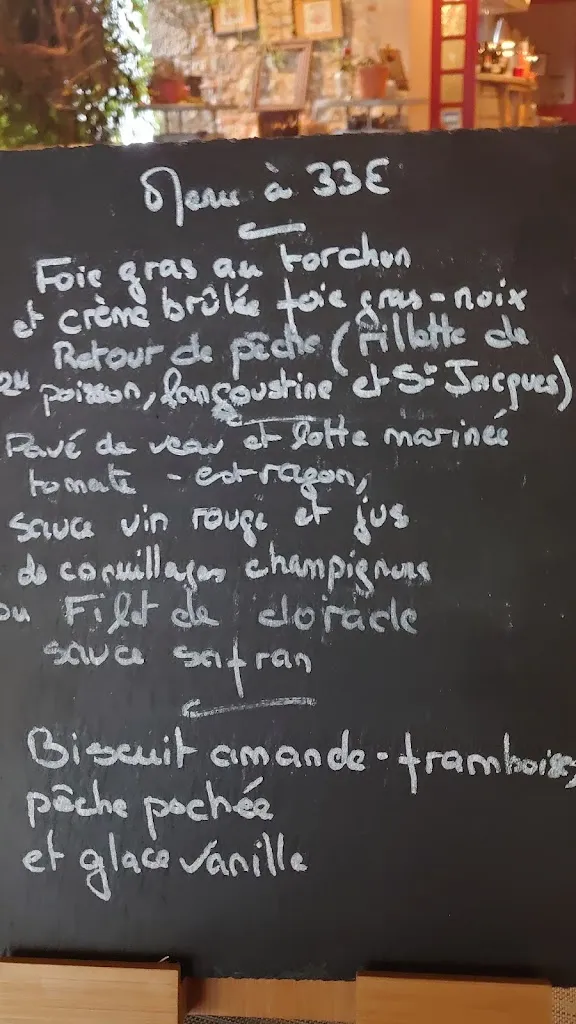 Menu à 33€
Foie gras au torchon
et crème brûlée foie gras - noix
Retour de pêche (rillette de
ou poisson, langoustine et St Jacques)
Pavé de veau et lotte marinée
tomate - estragon,
sauce vin rouge et jus
de coquillages champignons
ou Filet de dorade
sauce safran
Biscuit amande - framboises,
pêche pochée
et glace vanille